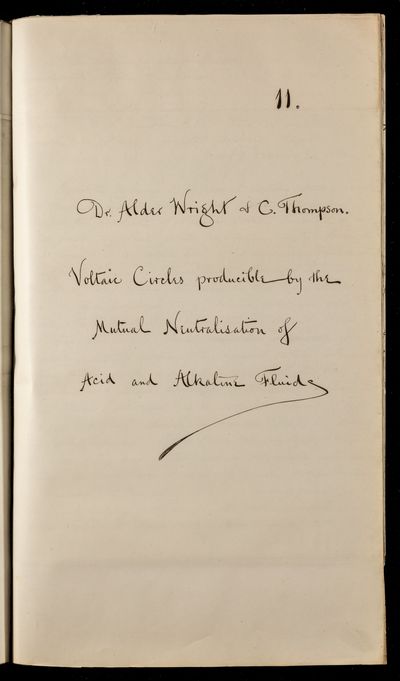 11.
Dr. Alder Wright & C. Thompson.
Voltaic Circles producible by the
Mutual Neutralisation of
Acid and Alkaline Fluids